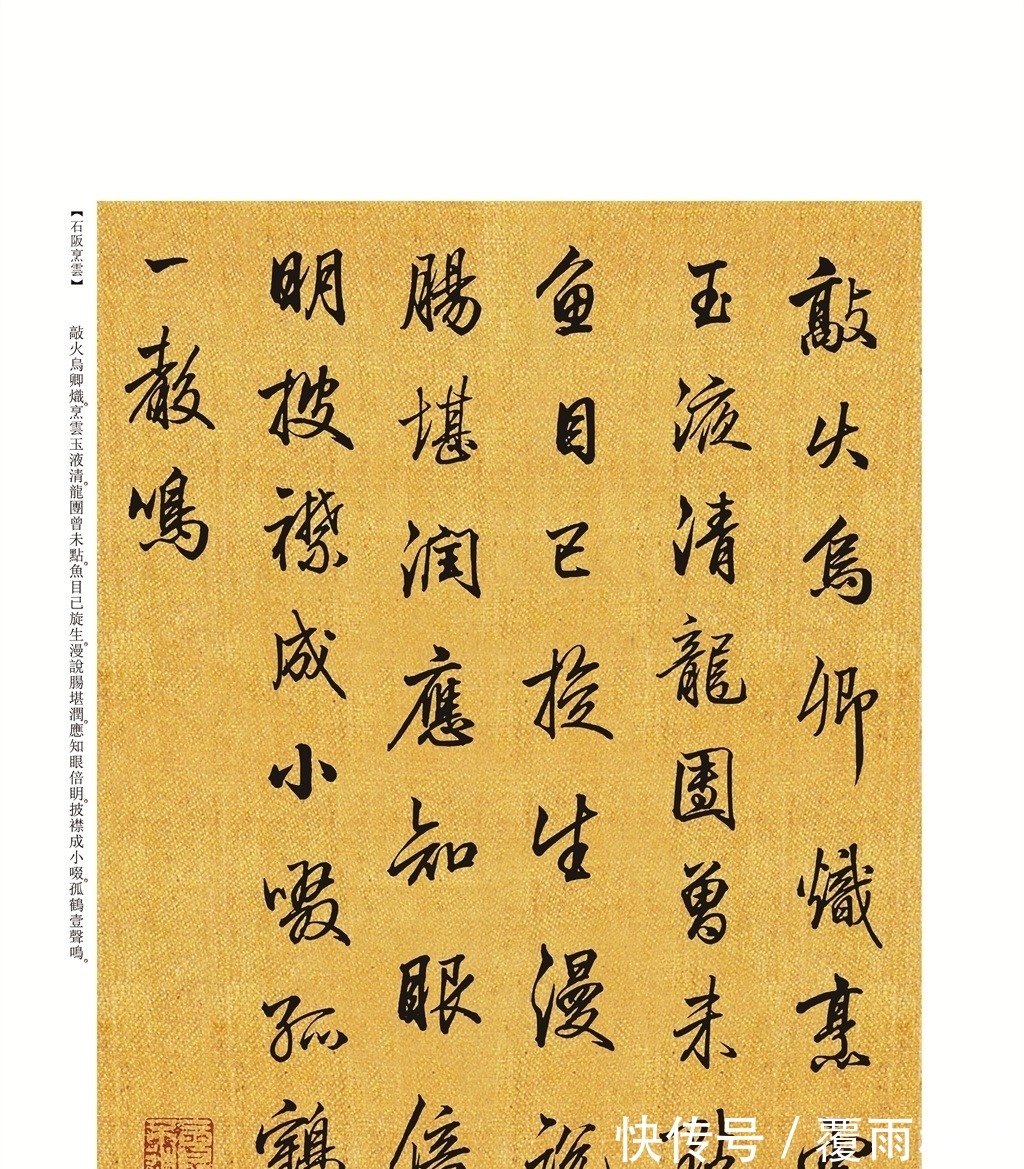 敲火烏卿熾烹雲
玉液清龍團曾未點
魚目已旋生漫說
腸堪潤應知眼倍
明披襟成小啜孤鶴
一聲鳴
【石阪烹雲】 敲火烏卿熾。烹雲玉液清。龍團曾未點。魚目已旋生。漫說腸堪潤。應知眼倍明。披襟成小啜。孤鶴壹聲鳴。
快传号 / 覆雨